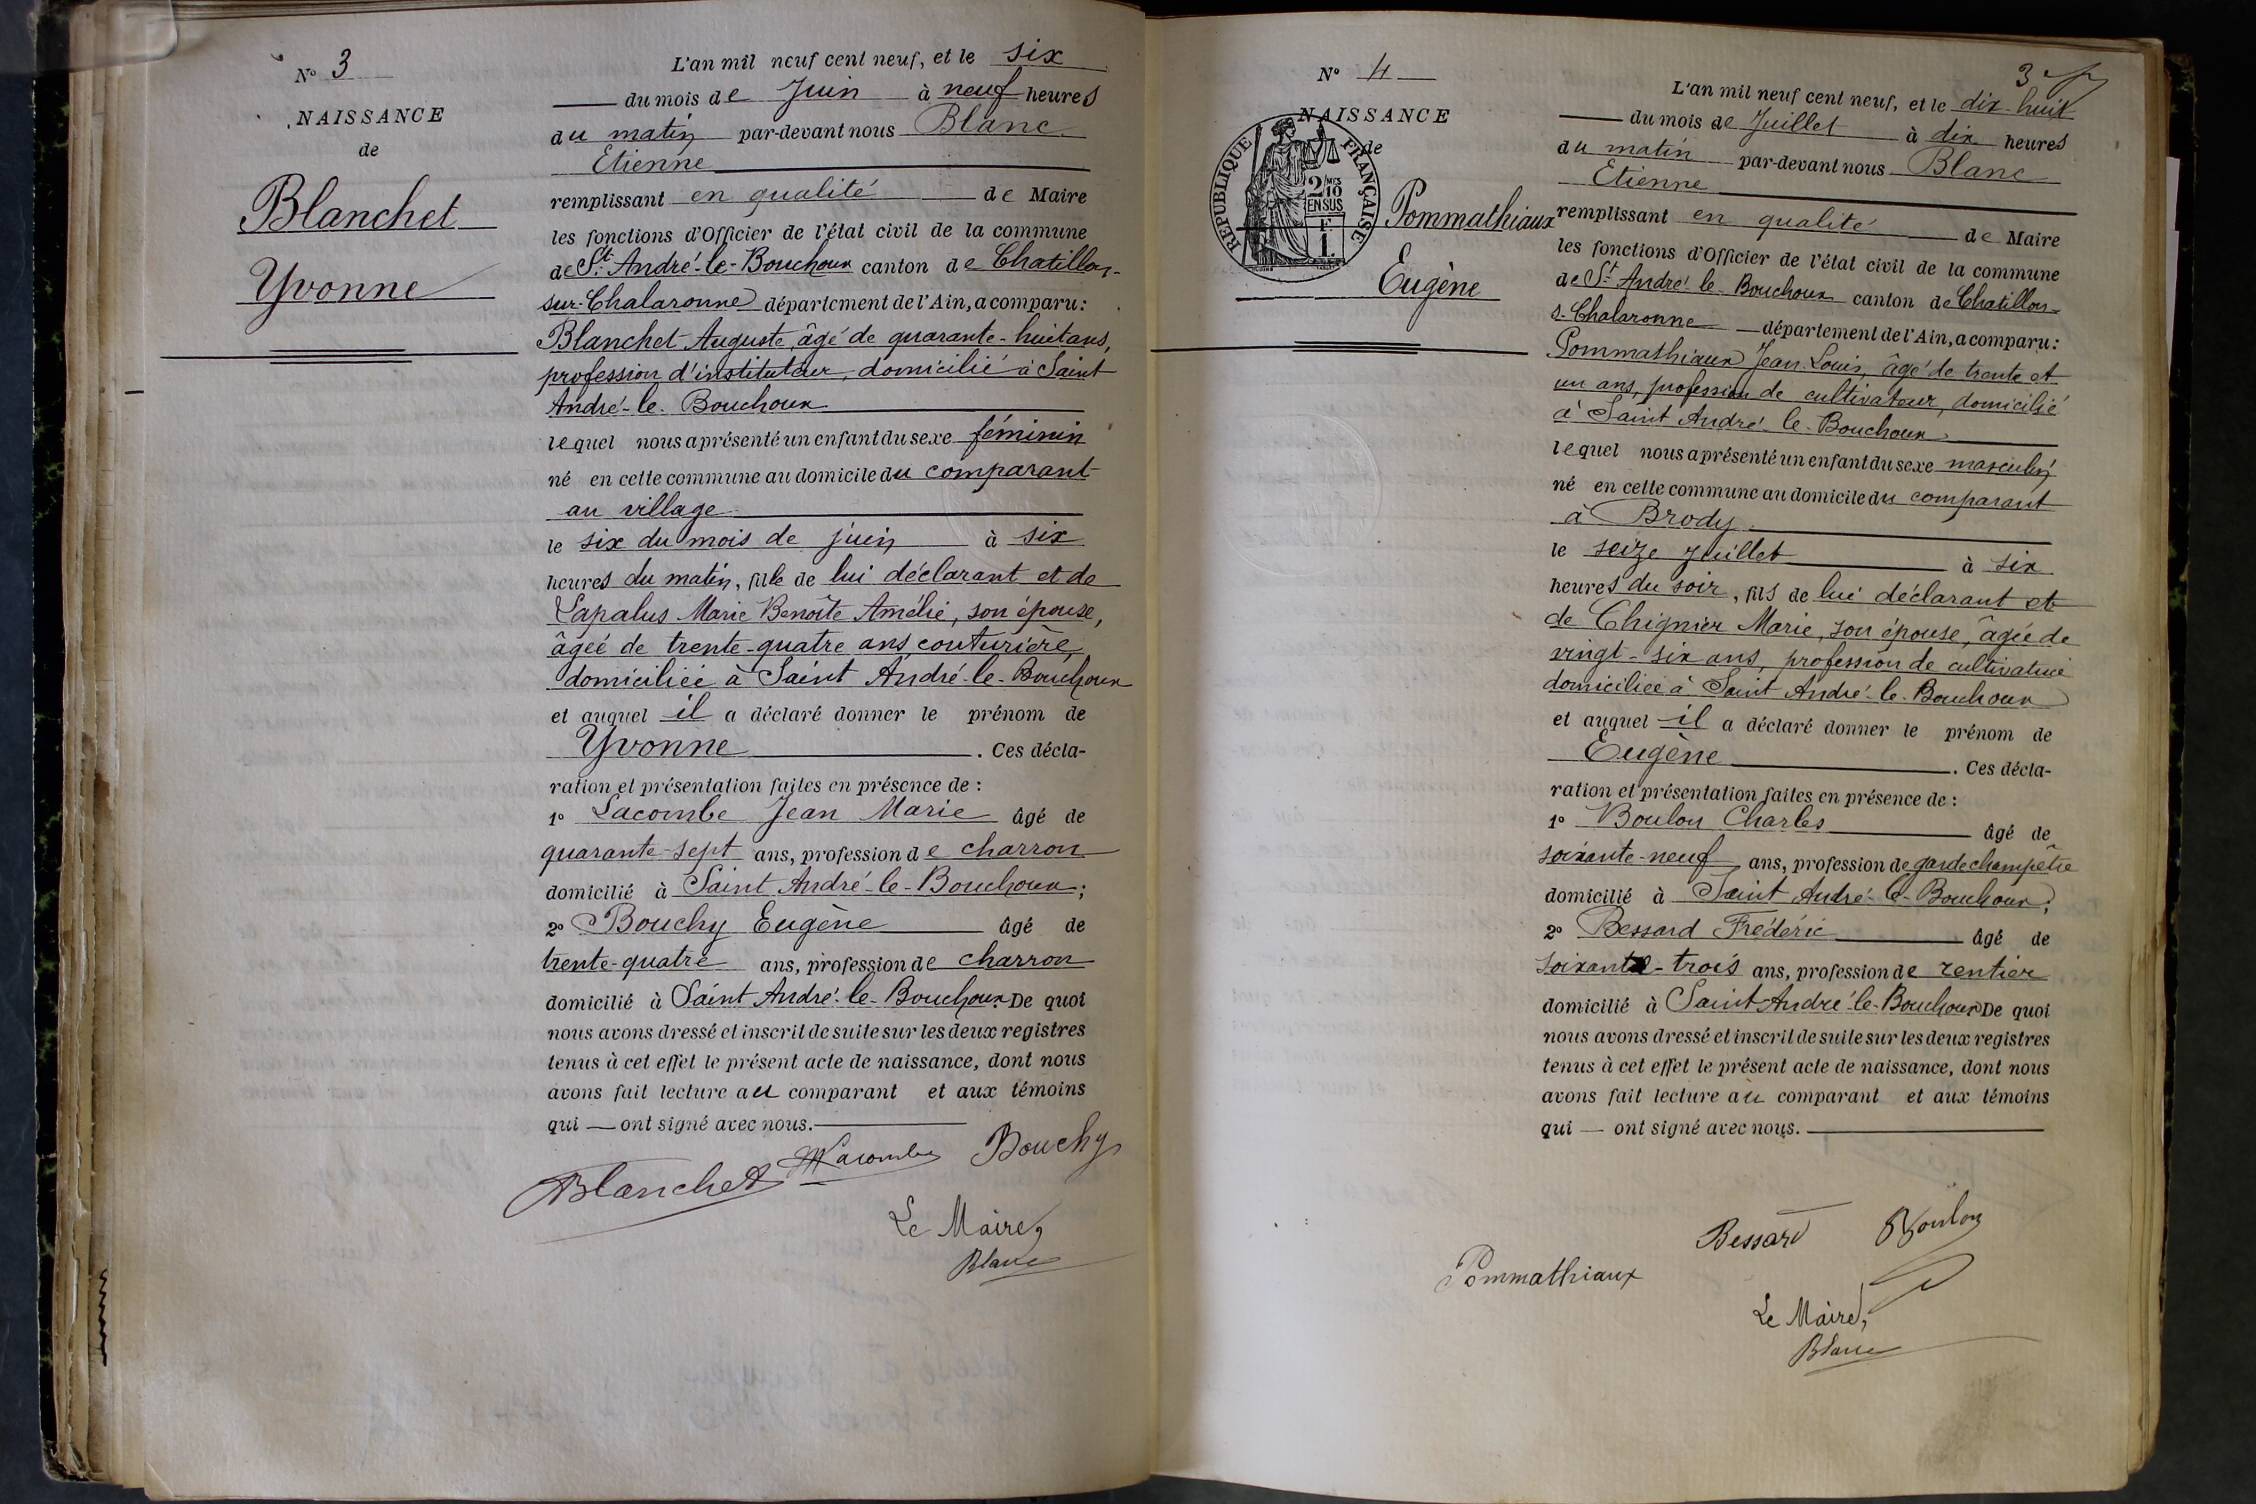 N° 3
NAISSANCE
de
Blanchet
Yvonne
L'an mil neuf cent neuf, et le six
du mois de Juin à neuf heures
du matin par-devant nous Blanc
Etienne
remplissant en qualité de Maire
les fonctions d'Officier de l'état civil de la commune
de St. André-le-Bouchoux canton de Chatillon-
sur-Chalaronne département de l'Ain, a comparu :
Blanchet Auguste, âgé de quarante-huit ans,
profession d'instituteur, domicilié à Saint
André-le-Bouchoux
lequel nous a présenté un enfant du sexe féminin
né en cette commune au domicile du comparant
au village
le six du mois de juin à six
heures du matin, fille de lui déclarant et de
Lapalus Marie Benoîte Amélie, son épouse,
âgée de trente-quatre ans couturière,
domiciliée à Saint André-le-Bouchoux
et auquel il a déclaré donner le prénom de
Yvonne . Ces décla-
ration et présentation faites en présence de :
1° Lacombe Jean Marie âgé de
quarante-sept ans, profession de charron
domicilié à Saint André-le-Bouchoux ;
2° Bouchy Eugène âgé de
trente-quatre ans, profession de charron
domicilié à Saint André-le-Bouchoux. De quoi
nous avons dressé et inscrit de suite sur les deux registres
tenus à cet effet le présent acte de naissance, dont nous
avons fait lecture au comparant et aux témoins
qui — ont signé avec nous.
Blanchet Lacombe Bouchy
Le Maire,
Blanc
3
N° 4
NAISSANCE
de
RÉPUBLIQUE FRANÇAISE
2/10 MES
EN SUS
1 F.
Pommathiaux
Eugène
L'an mil neuf cent neuf, et le dix-huit
du mois de Juillet à dix heures
du matin par-devant nous Blanc
Etienne
remplissant en qualité de Maire
les fonctions d'Officier de l'état civil de la commune
de St André-le-Bouchoux canton de Chatillon-
s-Chalaronne département de l'Ain, a comparu :
Pommathiaux Jean-Louis, âgé de trente et
un ans, profession de cultivateur, domicilié
à Saint André-le-Bouchoux
lequel nous a présenté un enfant du sexe masculin
né en cette commune au domicile du comparant
à Brody
le seize juillet à six
heures du soir, fils de lui déclarant et
de Chignier Marie, son épouse, âgée de
vingt-six ans, profession de cultivatrice
domiciliée à Saint André-le-Bouchoux
et auquel il a déclaré donner le prénom de
Eugène . Ces décla-
ration et présentation faites en présence de :
1° Boulon Charles âgé de
soixante-neuf ans, profession de garde champêtre
domicilié à Saint André-le-Bouchoux ;
2° Bessard Frédéric âgé de
soixante-trois ans, profession de rentier
domicilié à Saint André-le-Bouchoux De quoi
nous avons dressé et inscrit de suite sur les deux registres
tenus à cet effet le présent acte de naissance, dont nous
avons fait lecture au comparant et aux témoins
qui — ont signé avec nous.
Bessard Boulon
Pommathiaux
Le Maire,
Blanc